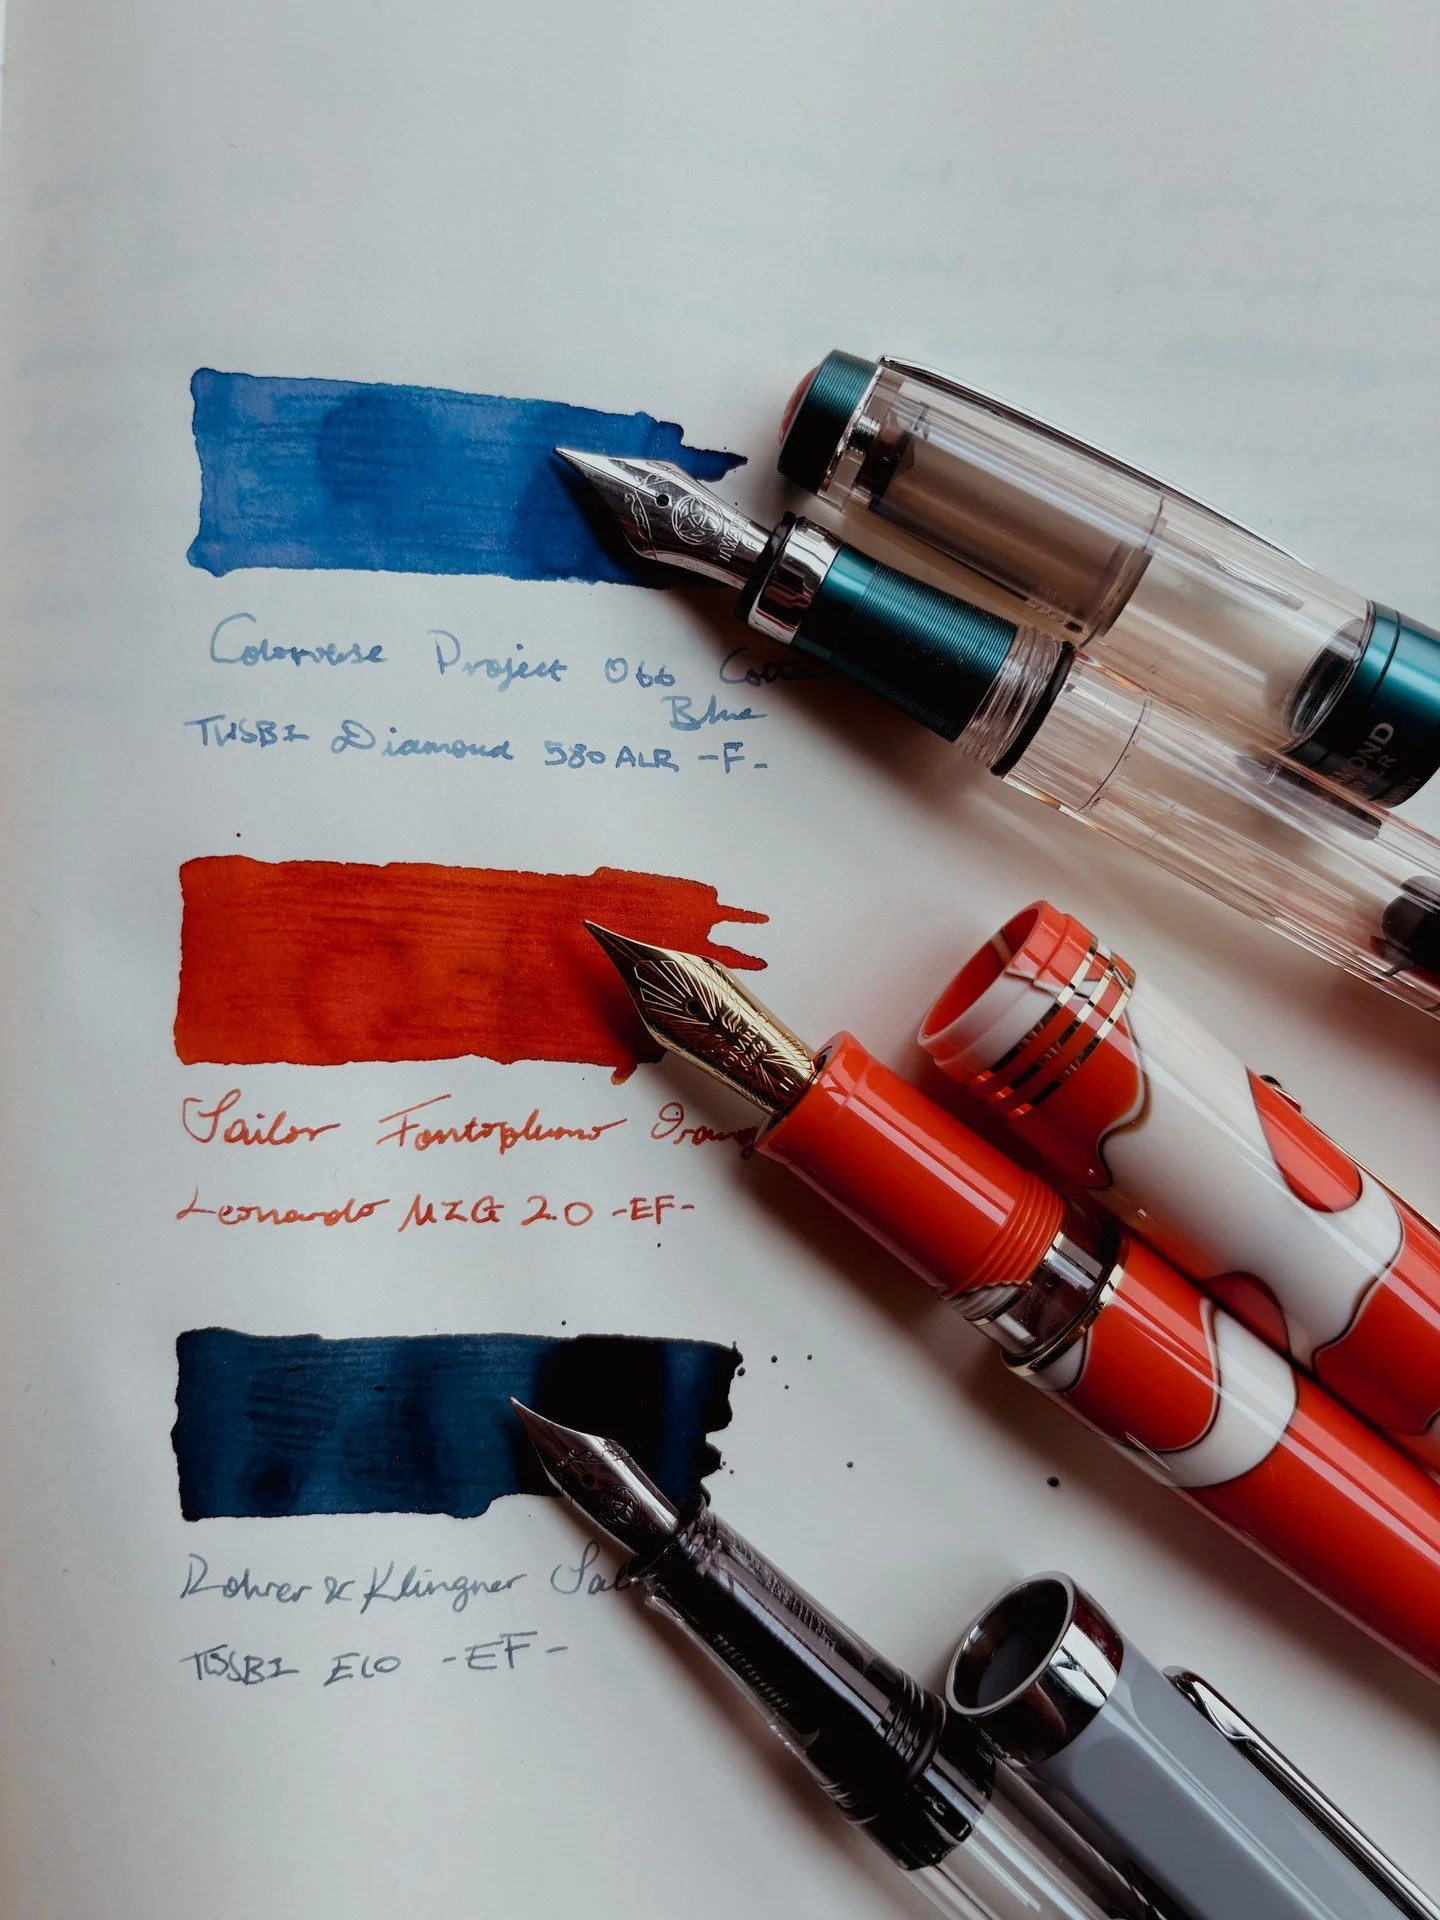 Colorverse Project 066
Blue
TWSBI Diamond 580 ALR -F-
Sailor Fontoplumo
Leonardo MZG 2.0 -EF-
Rohrer & Klingner
TWSBI ECO -EF-